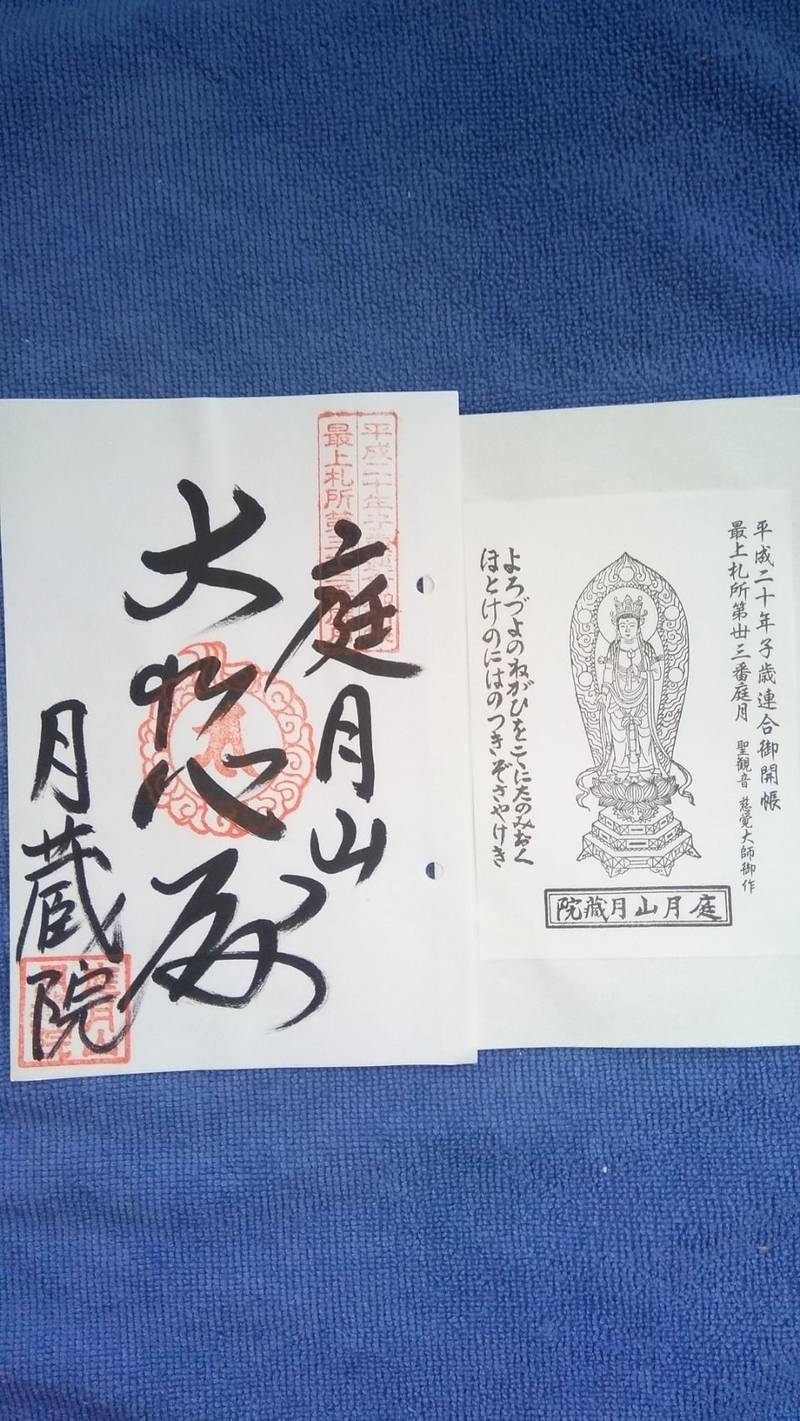 平成二十年子
最上札所第三
庭月山
大悲殿
月蔵院
平成二十年子歳連合御開帳
最上札所第丗三番庭月 聖観音 慈覚大師御作
よろづよのねがひをこゝにたのみおく
ほとけのにはのつきぞさやけき
庭月山月蔵院